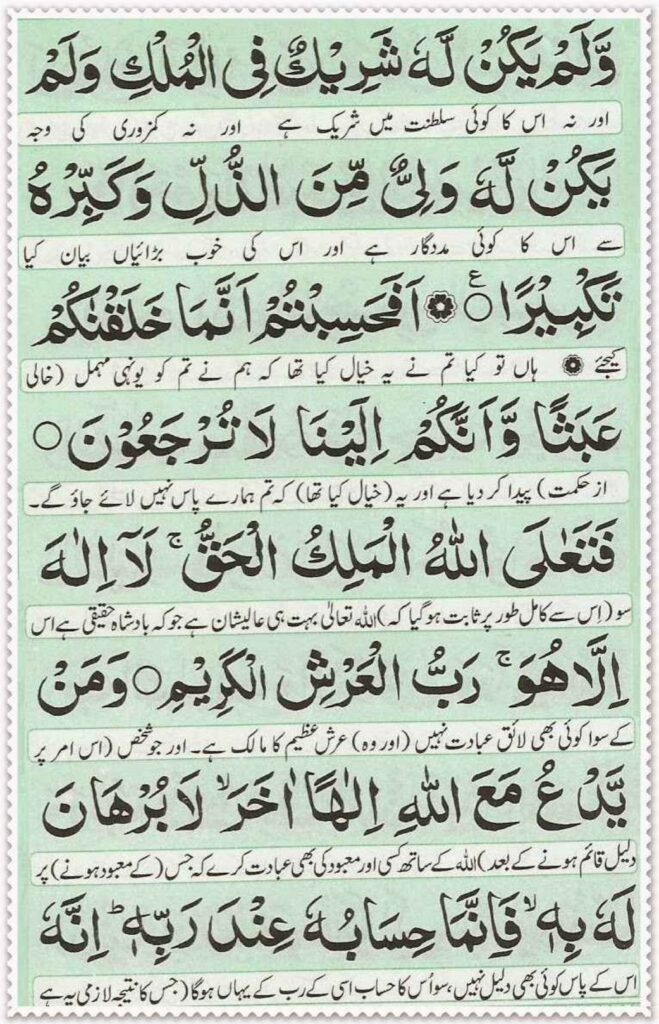 وَّلَمْ يَكُنْ لَّهٗ شَرِيْكٌ فِى الْمُلْكِ وَلَمْ
اور نہ اس کا کوئی سلطنت میں شریک ہے اور نہ کمزوری کی وجہ
يَكُنْ لَّهٗ وَلِىٌّ مِّنَ الذُّلِّ وَكَبِّرْهُ
سے اس کا کوئی مددگار ہے اور اس کی خوب بڑائیاں بیان کیا
تَكْبِيْرًا ○ ع ۞ اَفَحَسِبْتُمْ اَنَّمَا خَلَقْنٰكُمْ
کیجئے ۞ ہاں تو کیا تم نے یہ خیال کیا تھا کہ ہم نے تم کو یونہی مہمل (خالی
عَبَثًا وَّاَنَّكُمْ اِلَيْنَا لَا تُرْجَعُوْنَ ○
از حکمت) پیدا کر دیا ہے اور یہ (خیال کیا تھا) کہ تم ہمارے پاس نہیں لائے جاؤ گے۔
فَتَعٰلَى اللّٰهُ الْمَلِكُ الْحَقُّ ۚ لَاۤ اِلٰهَ
سو (اِس سے کامل طور پر ثابت ہو گیا کہ) اللہ تعالیٰ بہت ہی عالیشان ہے جو کہ بادشاہ حقیقی ہے اس
اِلَّا هُوَ ۚ رَبُّ الْعَرْشِ الْكَرِيْمِ ○ وَمَنْ
کے سوا کوئی بھی لائق عبادت نہیں (اور وہ) عرش عظیم کا مالک ہے۔ اور جو شخص (اس امر پر
يَّدْعُ مَعَ اللّٰهِ اِلٰهًا اٰخَرَ ۙ لَا بُرْهَانَ
دلیل قائم ہونے کے بعد) اللہ کے ساتھ کسی اور معبود کی بھی عبادت کرے کہ جس (کے معبود ہونے) پر
لَهٗ بِهٖ ۙ فَاِنَّمَا حِسَابُهٗ عِنْدَ رَبِّهٖ ؕ اِنَّهٗ
اس کے پاس کوئی بھی دلیل نہیں، سو اُس کا حساب اسی کے رب کے یہاں ہوگا (جس کا نتیجہ لازمی یہ ہے